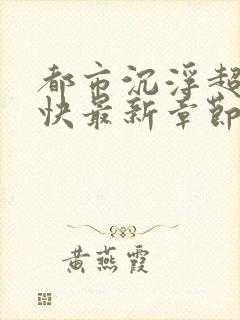 都市沉浮超
快最新章節
黄燕霞